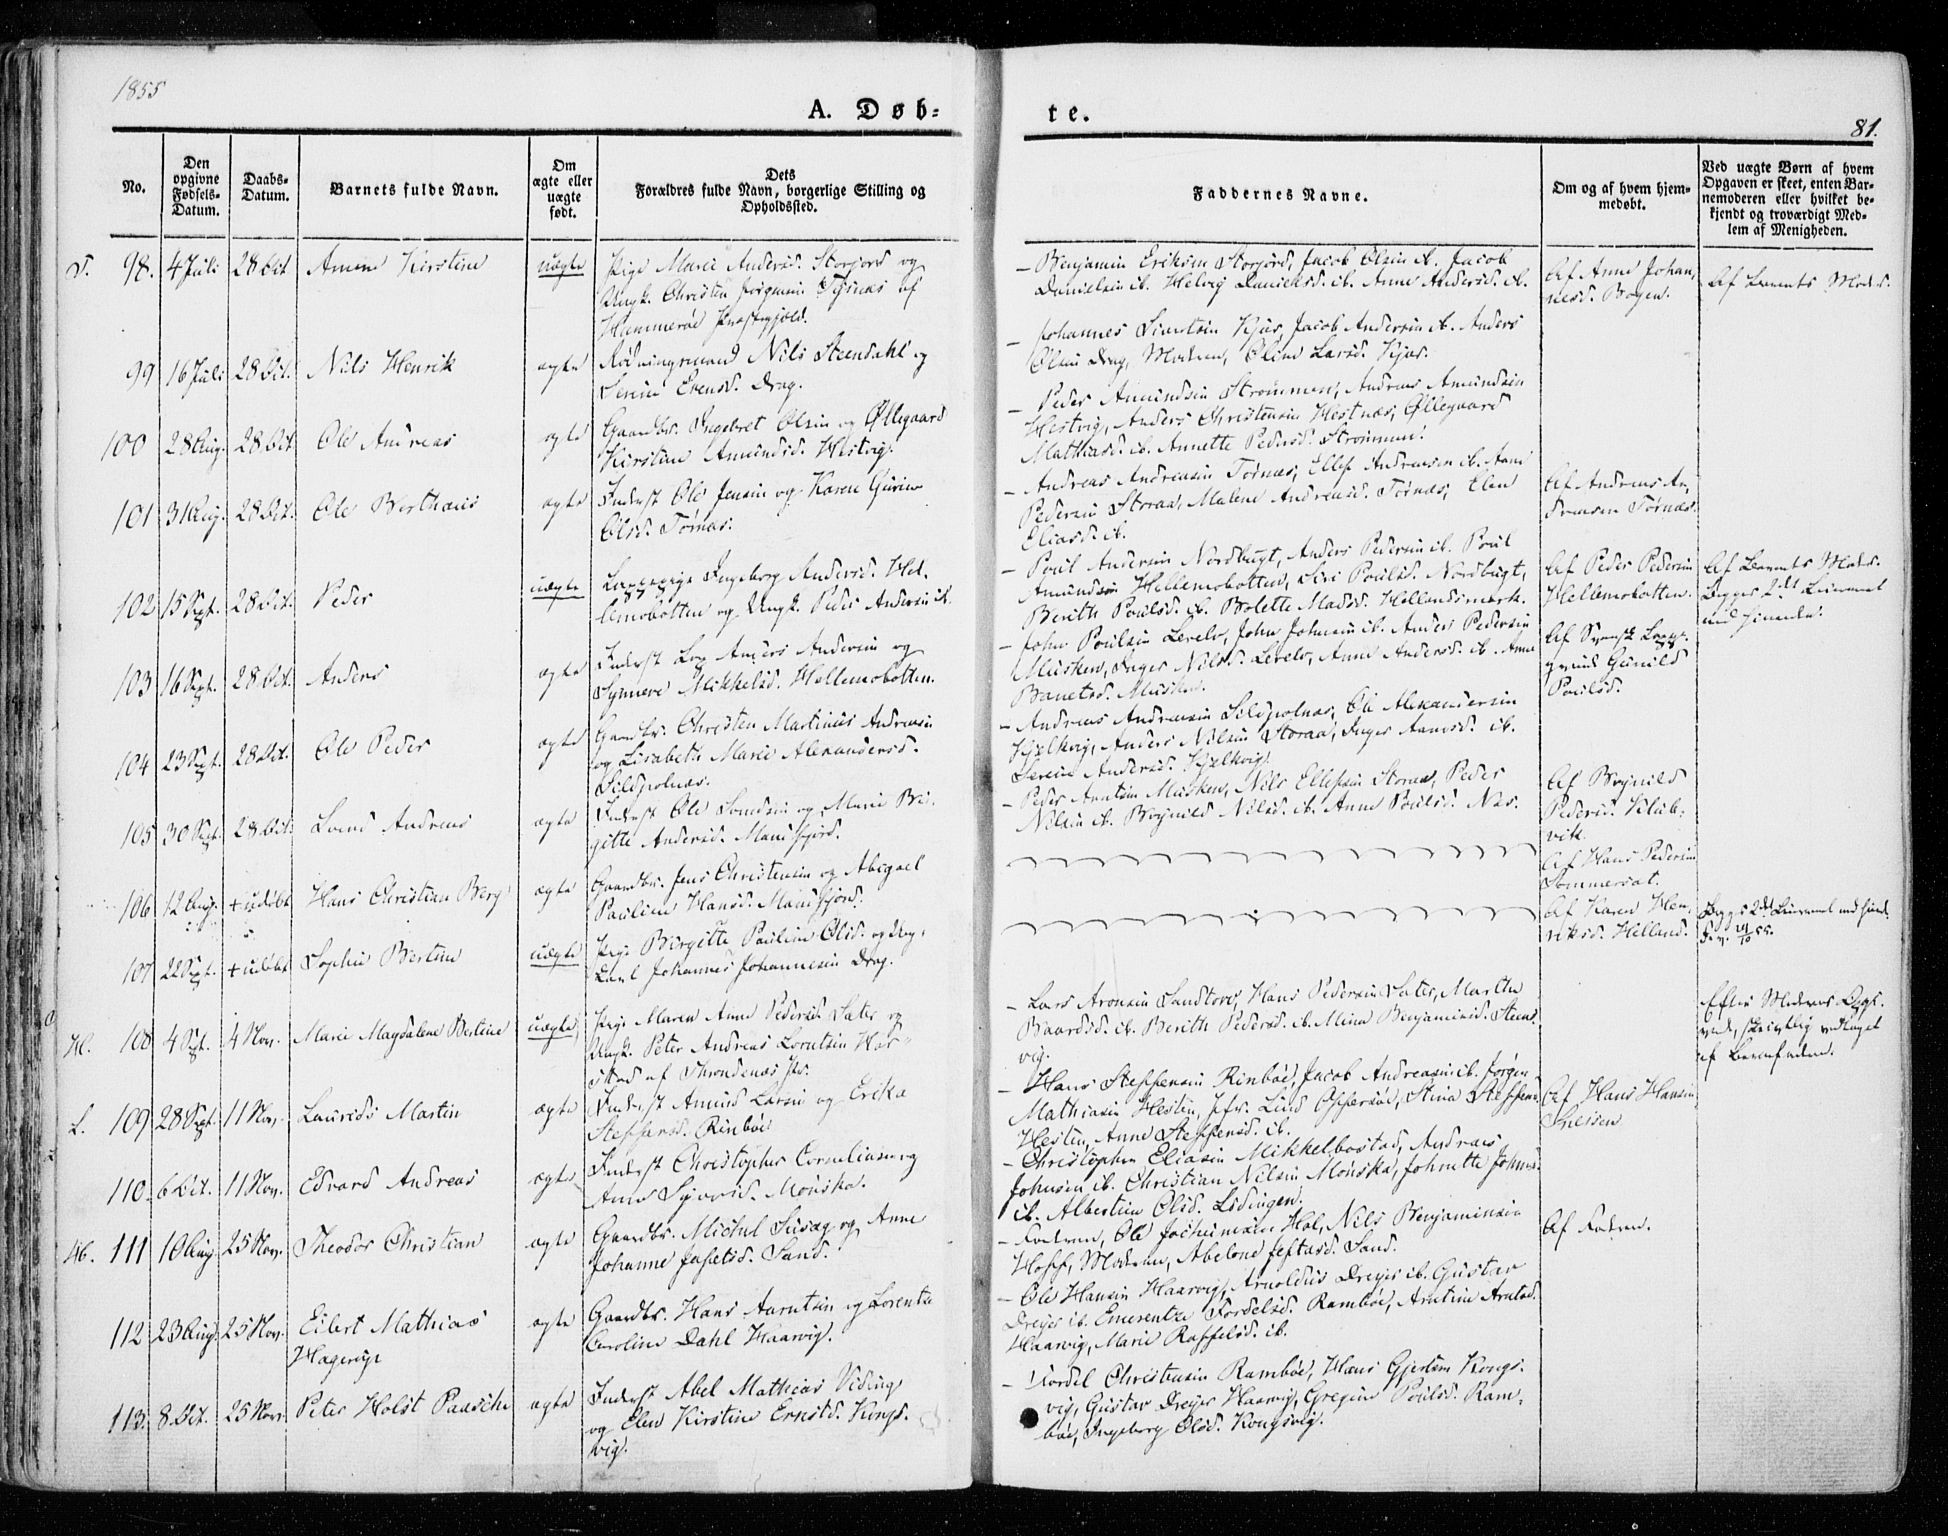 1855
A. Døb-
te.
81.
No.
Den
opgivne
Fødsels-
Datum.
Daabs-
Datum.
Barnets fulde Navn.
Om
ægte eller
uægte
født.
Dets
Forældres fulde Navn, borgerlige Stilling og
Opholdssted.
Faddernes Navne.
Om og af hvem hjem-
medøbt.
Ved uægte Børn af hvem
Opgaven er skeet, enten Bar-
nemoderen eller hvilket be-
kjendt og troværdigt Med-
lem af Menigheden.
98. 4 Juli 28 Oct Kirstine uægte Pige Marie Andersd. Storjord og
Ungk. Christen
Hammerøe Præstegjeld.
Benjamin Eriksen Storjord, Jacob Olsen ib. Jacob
Danielsen ib. Helvig Danielsd. ib. Anne Andersd. ib.
Af Anne Johan-
nesd. Bogen.
Af Barnets Moder.
99 16 Juli 28 Oct. Nils Henrik ægte Nils Steendahl og
Evensd. Drag.
Johannes Kjær, Jacob Andersen ib. Anders
Olsen Drag, Moderen, Larsd. Kjær.
100 28 Aug. 28 Oct. Ole Andreas ægte Gaardbr. Ingebret Olsen og Øllegaard
Kirstine Amundsd. Hestvig.
Peder Amundsen Strømmen, Andreas Amundsen
Hestvig, Anders Christensen Hestnæs, Øllegaard
Matthiasd. ib. Annette Pedersd. Strømmen.
101 31 Aug. 28 Oct. Ole Berthæus ægte Inderst Ole Jensen og Karen
Olsd. Tørnæs.
Andreas Andreasen Tørnæs, Andreasen ib.
Pedersen Storaa, Malene Andreasd. Tørnæs, Elen
Eliasd. ib.
Af Andreas An-
dreasen Tørnæs.
102 15 Sept. 28 Oct. Peder uægte Lappepige Ingeborg Andersd. Hel-
lemobotten og Ungk. Peder Andersen ib.
Poul Andersen Nordbugt, Anders Pedersen ib. Poul
Amundsen Hellemobotten, Siri Poulsd. Nordbugt,
Berith Poulsd. ib. Bolette Madsd. Hellandsmark.
Af Peder Pedersen
Hellemobotten.
Af Barnets Moder.
Begges 2det Leiermaal
103 16 Sept. 28 Oct. Anders ægte Inderst Lap Anders Andersen og
Synneve Mikkelsd. Hellemobotten.
John Poulsen John Johnsen ib. Anders Pedersen
Musken, Inger Nilsd. Anne Andersd. ib. Anne
Musken.
Af Svensk Lappe-
Gunild
Poulsd.
104 23 Sept. 28 Oct. Ole Peder ægte Gaardbr. Christen Martinus Andreasen
og Lisabeth Marie Alexandersd.
Sildpolnæs.
Andreas Andreasen Sildpolnæs, Ole Alexandersen
Kjelkvig, Anders Nilsen Storaa, Inger ib.
Andersd. Kjelkvig.
105 30 Sept. 28 Oct. Andreas ægte Inderst Ole og Marie Bri-
gitte Andersd.
Peder Musken, Nils Storaa, Peder
Nilsen ib. Nilsd. ib. Anne Poulsd. Næs.
Af
Pedersd.
vik.
106 12 Aug. + udøbt Hans Christian Berg ægte Gaardbr. Jens Christensen og Abigael
Pauline Hansd.
Af Hans Pedersen
Sommerset.
107 22 Sept. + udøbt Sophie Bertine uægte Pige Birgitte Pauline Olsd. og Ung-
karl Johannes Johannesen Drag.
Af Karen Hen-
riksd. Helland.
Begges 2det Leiermaal
108 4 Sept. 4 Nov. Marie Magdalene Bertine uægte Pige Maren Anne Pedersd. Sæter og
Ungk. Peter Andreas Lorntsen Har-
stad af Throndenæs Pr.
Lars Aronsen Sandtorv, Hans Pedersen Sæter, Marthe
Baardsd. ib. Berith Pedersd. ib. Mina Benjaminsd. Steens-
vig.
Efter Moderens Opgi-
vende, skriftlig vedtaget
af Barnefaderen.
L. 109 28 Sept. 11 Nov. Laurids Martin ægte Inderst Amund Larsen og Erika
Steffensd. Rinbøe
Hans Steffensen Rinbøe, Jacob Andreasen ib. Jørgen
Mathiasen Hesten, Jfr. Lind Offersøe, Stina Steffensd.
Hesten, Anne Steffensd. ib.
Af Hans Hansen
110. 6 Oct. 11 Nov. Edvard Andreas ægte Inderst Christopher Corneliusen og
Anne
Christopher Eliasen Mikkelbostad, Andreas
Johnsen ib. Christian Nilsen Johnette
ib. Albertine Olsd. Lødingen.
111 10 Aug 25 Nov. Theodor Christian ægte Gaardbr. Michel og Anne
Johanne Sand.
Faderen, Ole Jochumsen Hol, Nils Benjaminsen
Hoff, Moderen, Abelone Jeftasd. Sand.
Af Faderen.
112 23 Aug. 25 Nov. Eilert Mathias
Hagerup
ægte Gaardbr. Hans Arntsen og Lorentze
Caroline Dahl Haarvig.
Ole Hansen Haarvig, Arnoldus Dreyer ib. Gustav
Dreyer ib. Emerentze Fordelsd. Rambøe,
Haarvig, Marie ib.
113. 8 Oct. 25 Nov. Peter Holst Paasche ægte Inderst Abel Mathias
og Elen Kirstine Ernstd. Kongs-
vig.
Fordel Christensen Rambøe, Hans Kongs-
vig, Gustav Dreyer Haarvig, Poulsd. Ram-
bøe, Ingeborg Olsd. Kongsvig.